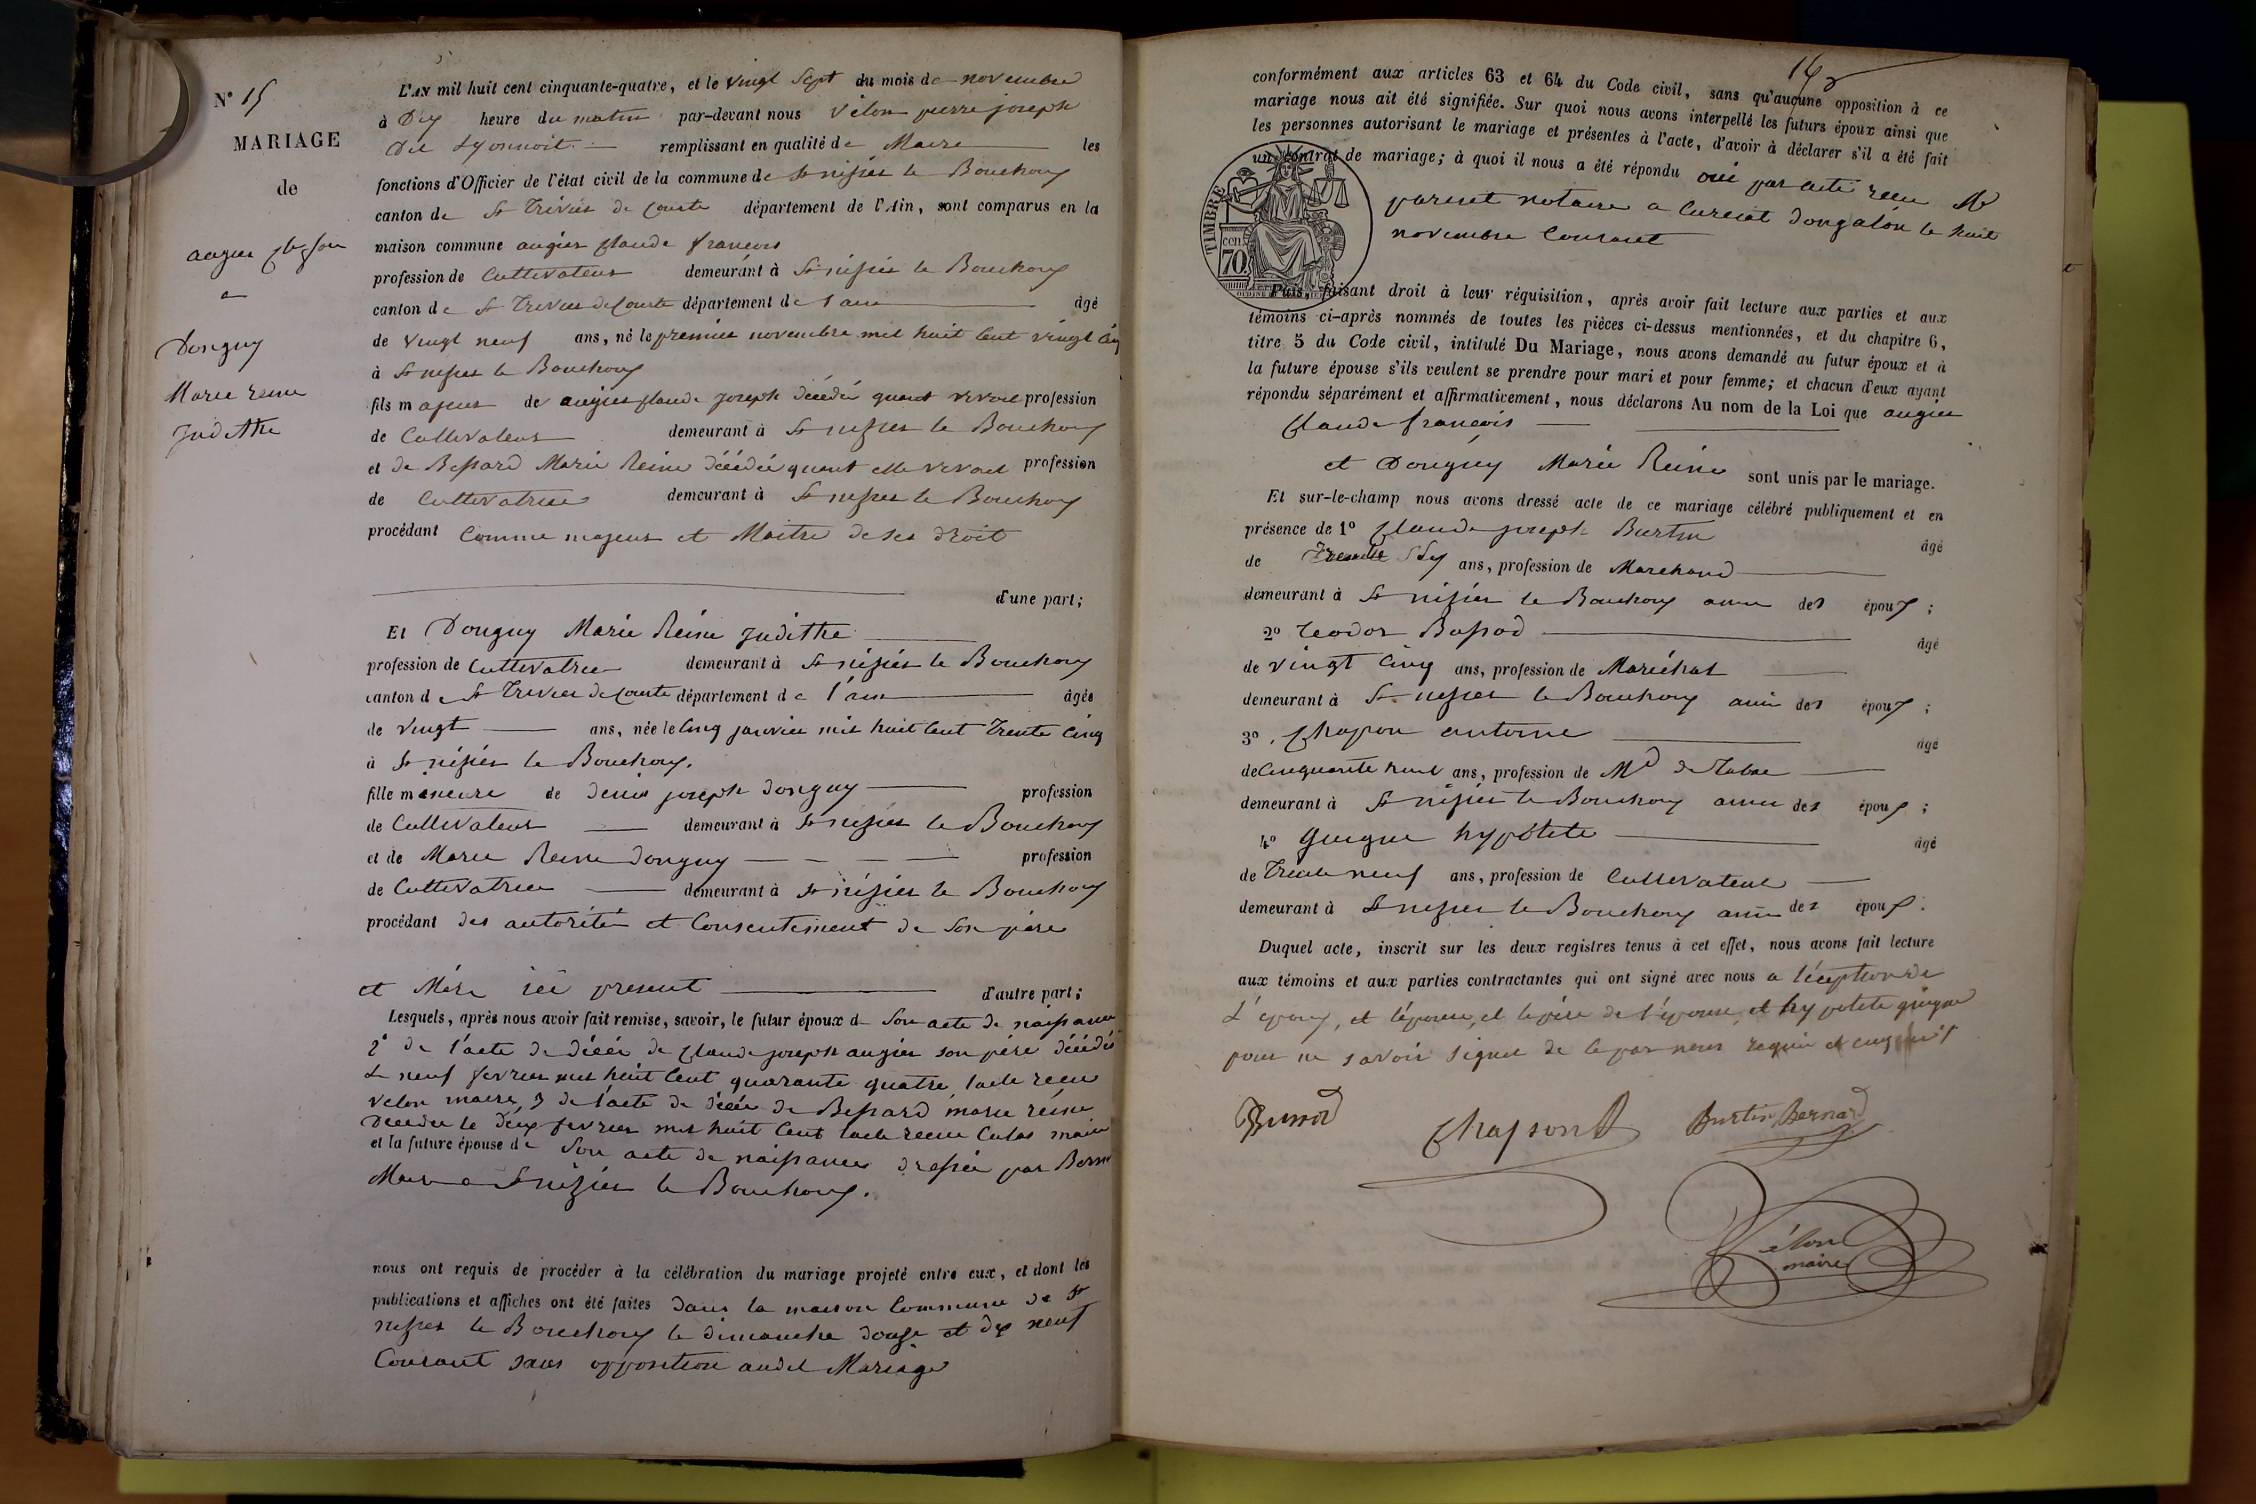 N° 15
MARIAGE
de
augier
a
Donguy
Marie reine
Judithe
L'AN mil huit cent cinquante-quatre, et le vingt sept du mois de novembre
à Dix heure du matin par-devant nous Vélon pierre joseph
Dit Lyonnoit remplissant en qualité de Maire les
fonctions d'Officier de l'état civil de la commune de St nizier le Bouchoux
canton de St Trivier de Courte département de l'Ain, sont comparus en la
maison commune augier Claude francois
profession de Cultivateur demeurant à St nizier le Bouchoux
canton de St Trivier de Courte département de l'ain âgé
de vingt neuf ans, né le premier novembre mil huit Cent vingt Cinq
à St nizier le Bouchoux
fils majeur de augier Claude joseph décédé quant vivoit profession
de Cultivateur demeurant à St nizier le Bouchoux
et de Bessard Marie Reine décédée quant elle vivoit profession
de Cultivatrice demeurant à St nizier le Bouchoux
procédant Comme majeur et Maitre de ses droit
d'une part;
Et Donguy Marie Reine Judithe
profession de Cultivatrice demeurant à St nizier le Bouchoux
canton de St Trivier de Courte département de l'ain âgée
de vingt ans, née le Cinq janvier mil huit Cent Trente Cinq
à St nizier le Bouchoux.
fille mineure de denis joseph donguy profession
de Cultivateur demeurant à St nizier le Bouchoux
et de Marie Reine donguy profession
de Cultivatrice demeurant à St nizier le Bouchoux
procédant des autorité et Consentement de Son père
et Mère ici present d'autre part;
Lesquels, après nous avoir fait remise, savoir, le futur époux de Son acte de naissance
2° de l'acte de décés de Claude joseph augier son père décédé
Le neuf fevrier mil huit Cent quarante quatre, l'acte recu
Velon maire, 3 de l'acte de décés de Bessard marie reine
Decedee le Deux fevrier mil huit Cent l'acte recu maire
et la future épouse de Son acte de naissance dressée par
Maire a St nizier le Bouchoux.
nous ont requis de procéder à la célébration du mariage projeté entre eux, et dont les
publications et affiches ont été faites dans la maison Commune de St
nizier le Bouchoux le dimanche douze et dix neuf
Courant sans opposition audit Mariage
conformément aux articles 63 et 64 du Code civil, sans qu'aucune opposition à ce
mariage nous ait été signifiée. Sur quoi nous avons interpellé les futurs époux ainsi que
les personnes autorisant le mariage et présentes à l'acte, d'avoir à déclarer s'il a été fait
un contrat de mariage; à quoi il nous a été répondu oui par acte recu Me
notaire a Curciat dongalon le huit
novembre Courant
TIMBRE
cen.
70
Puis, faisant droit à leur réquisition, après avoir fait lecture aux parties et aux
témoins ci-après nommés de toutes les pièces ci-dessus mentionnées, et du chapitre 6,
titre 5 du Code civil, intitulé Du Mariage, nous avons demandé au futur époux et à
la future épouse s'ils veulent se prendre pour mari et pour femme; et chacun d'eux ayant
répondu séparément et affirmativement, nous déclarons Au nom de la Loi que augier
Claude francois
et Donguy Marie Reine sont unis par le mariage.
Et sur-le-champ nous avons dressé acte de ce mariage célébré publiquement et en
présence de 1° Claude joseph Burtin âgé
de Trente ans, profession de Marchand
demeurant à St nizier le Bouchoux ami des époux;
2° Teodor âgé
de vingt Cinq ans, profession de Maréchal
demeurant à St nizier le Bouchoux ami des époux;
3° Chapon antoine âgé
de Cinquante huit ans, profession de Md de Tabac
demeurant à St nizier le Bouchoux ami des époux;
4° Guigue hypolite âgé
de Trente neuf ans, profession de Cultivateur
demeurant à St nizier le Bouchoux ami des époux.
Duquel acte, inscrit sur les deux registres tenus à cet effet, nous avons fait lecture
aux témoins et aux parties contractantes qui ont signé avec nous a l'éception de
L'époux, et l'épouse, et le père de l'épouse, et hypolite guigue
pour ne savoir signer de ce par nous requis et enquis
Burtin Bernard
Vélon
maire